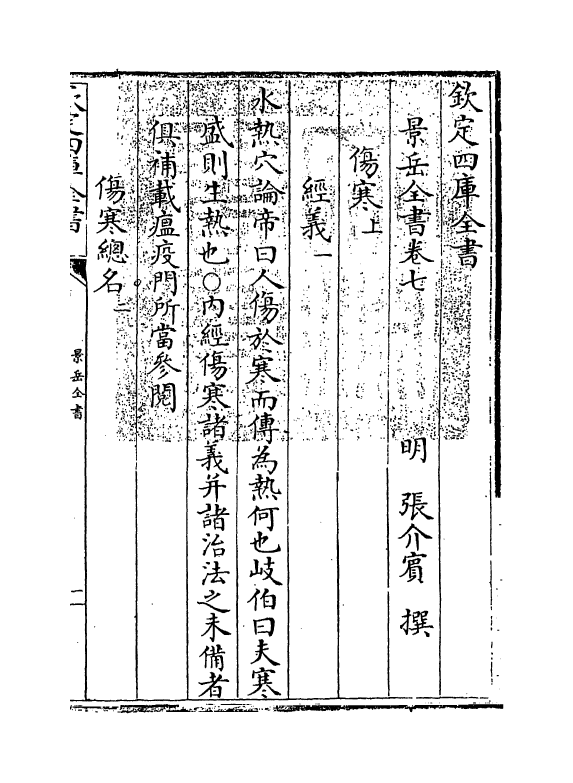 欽定四庫全書
景岳全書卷七
明 張介賓 撰
傷寒上
經義一
水熱穴論帝曰人傷於寒而傳為熱何也岐伯曰夫寒
盛則生熱也○内經傷寒諸義并諸治法之未備者
俱補載瘟疫門所當參閱
傷寒總名二
欽定四庫全書
景岳全書
一